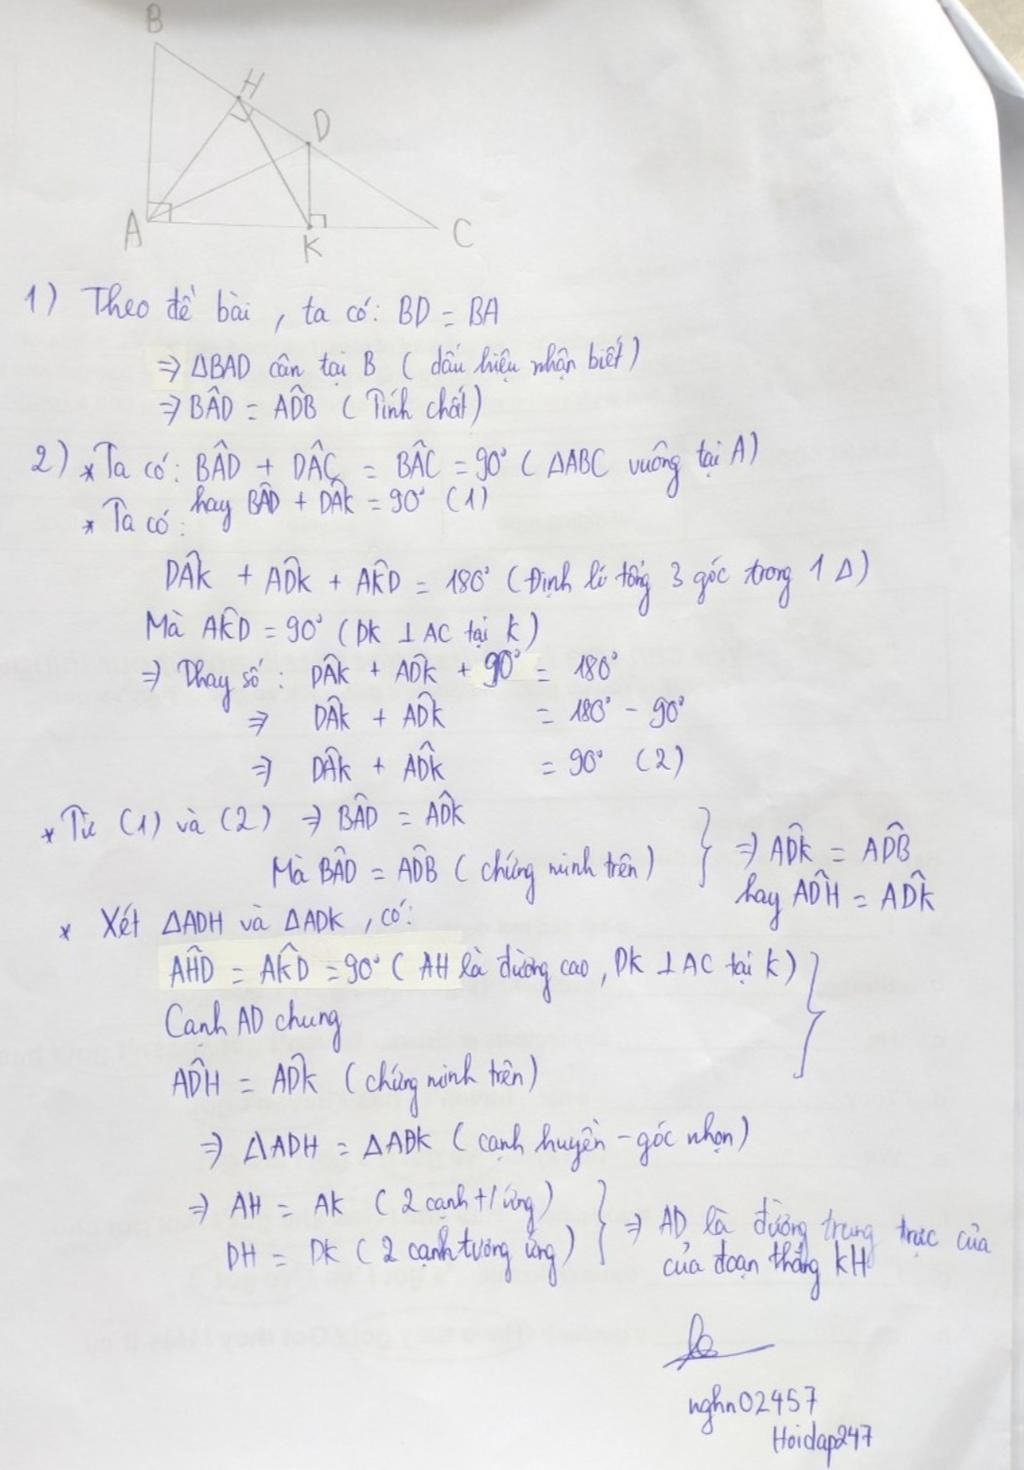 B
H
D
A
K
C
1) Theo đề bài, ta có: BD = BA
⇒ ΔBAD cân tại B ( dấu hiệu nhận biết)
⇒ BÂD = AD̂B ( Tính chất)
2) * Ta có: BÂD + DÂC = BÂC = 90° ( ΔABC vuông tại A)
hay BÂD + DÂK = 90° (1)
* Ta có:
DÂK + AD̂K + AK̂D = 180° (Định lí tổng 3 góc trong 1 Δ)
Mà AK̂D = 90° (DK ⊥ AC tại K)
⇒ Thay số: DÂK + AD̂K + 90° = 180°
⇒ DÂK + AD̂K = 180° - 90°
⇒ DÂK + AD̂K = 90° (2)
* Từ (1) và (2) ⇒ BÂD = AD̂K
Mà BÂD = AD̂B ( chứng minh trên) } ⇒ AD̂K = AD̂B
hay AD̂H = AD̂K
* Xét ΔADH và ΔADK, có:
AĤD = AK̂D = 90° ( AH là đường cao, DK ⊥ AC tại K)
Cạnh AD chung
AD̂H = AD̂K (chứng minh trên)
⇒ ΔADH = ΔADK ( cạnh huyền - góc nhọn)
⇒ AH = AK ( 2 cạnh t/ ứng)
DH = DK ( 2 cạnh tương ứng) } ⇒ AD là đường trung trực của
của đoạn thẳng KH
nghn02457
Hoidap247